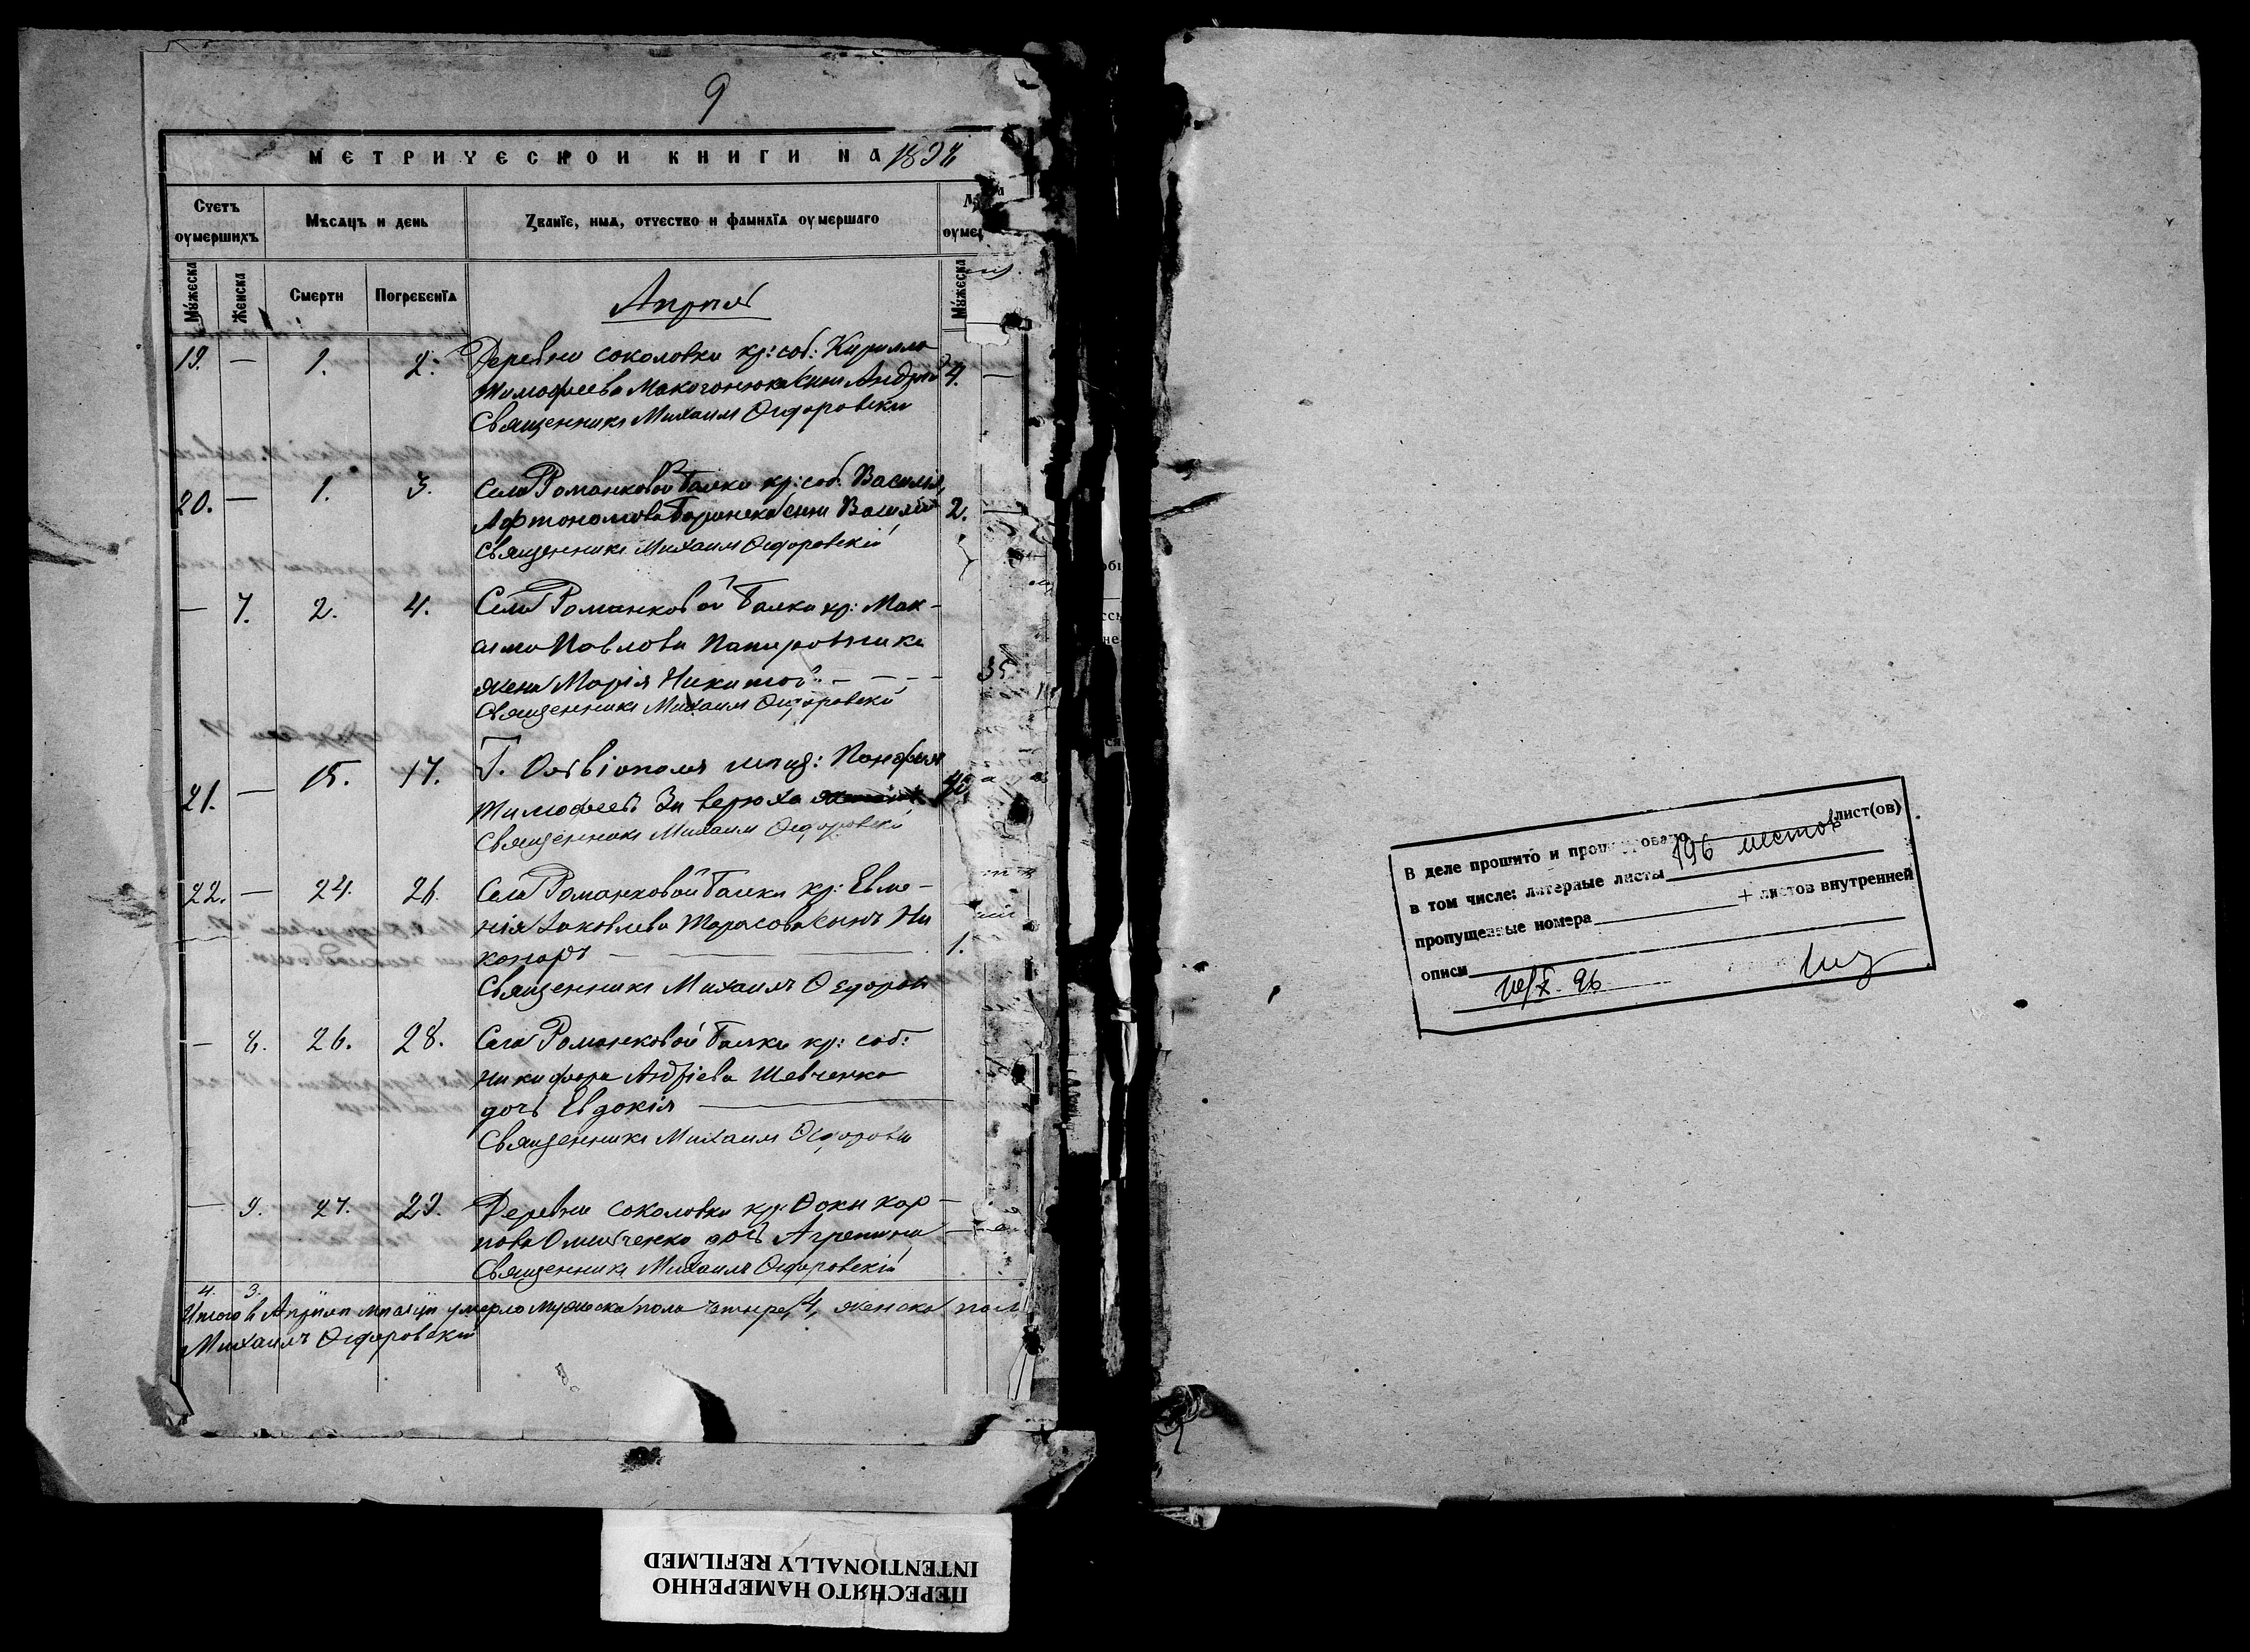 9
МЕТРИЧЕСКОЙ КНИГИ НА 189
Счетъ
оумершихъ
Мѣсяцъ и день
Званїе, имя, отчество и фамилїа оумершаго
оумер
Мꙋжеска
Женска
Смерти
Погребенїа
Мꙋжеска
Април
19. — 1. 2. Деревни Соколовки кр: соб: Кирилла
Тимофеева Макогонюка сын Андрей 4. —
Священникъ Михаилъ Ѳедоровски
20. — 1. 3. Села Романковой Балки кр: соб. Василія
Афтономова сын Василій 2. —
Священникъ Михаилъ Ѳедоровскій
— 7. 2. 4. Села Романковой Балки кр: Мак-
сима Павлова
жена Марія 35
Священникъ Михаилъ Ѳедоровскій
21. — 15. 17. Г. Олвіополя мищ: Панфил
Тимофеев
Священникъ Михаилъ Ѳедоровскій
22. — 24. 26. Села Романковой Балки кр: Евме-
нія Яковлева Тарасова сынъ Ни
каноръ — 1.
Священникъ Михаилъ Ѳедоров
— 8. 26. 28. Села Романковой Балки кр: соб:
Никифора Андріева Шевченко
дочь Евдокія
Священникъ Михаилъ Ѳедоровски
— 9. 27. 29. Деревни Соколовки кр: Ѳоки Кар-
пова дочь Агрепина —
Священникъ Михаилъ Ѳедоровскій
4. 3.
Итого в Апрѣлѣ мѣсяцѣ умерло мужеска пола четыре, 4, женска пол
Михаилъ Ѳедоровскій
В деле прошито и пронумеровано 196 листов лист(ов)
в том числе: литерные листы
пропущенные номера + листов внутренней
описи
96
ПЕРЕСНЯТО НАМЕРЕННО
INTENTIONALLY REFILMED